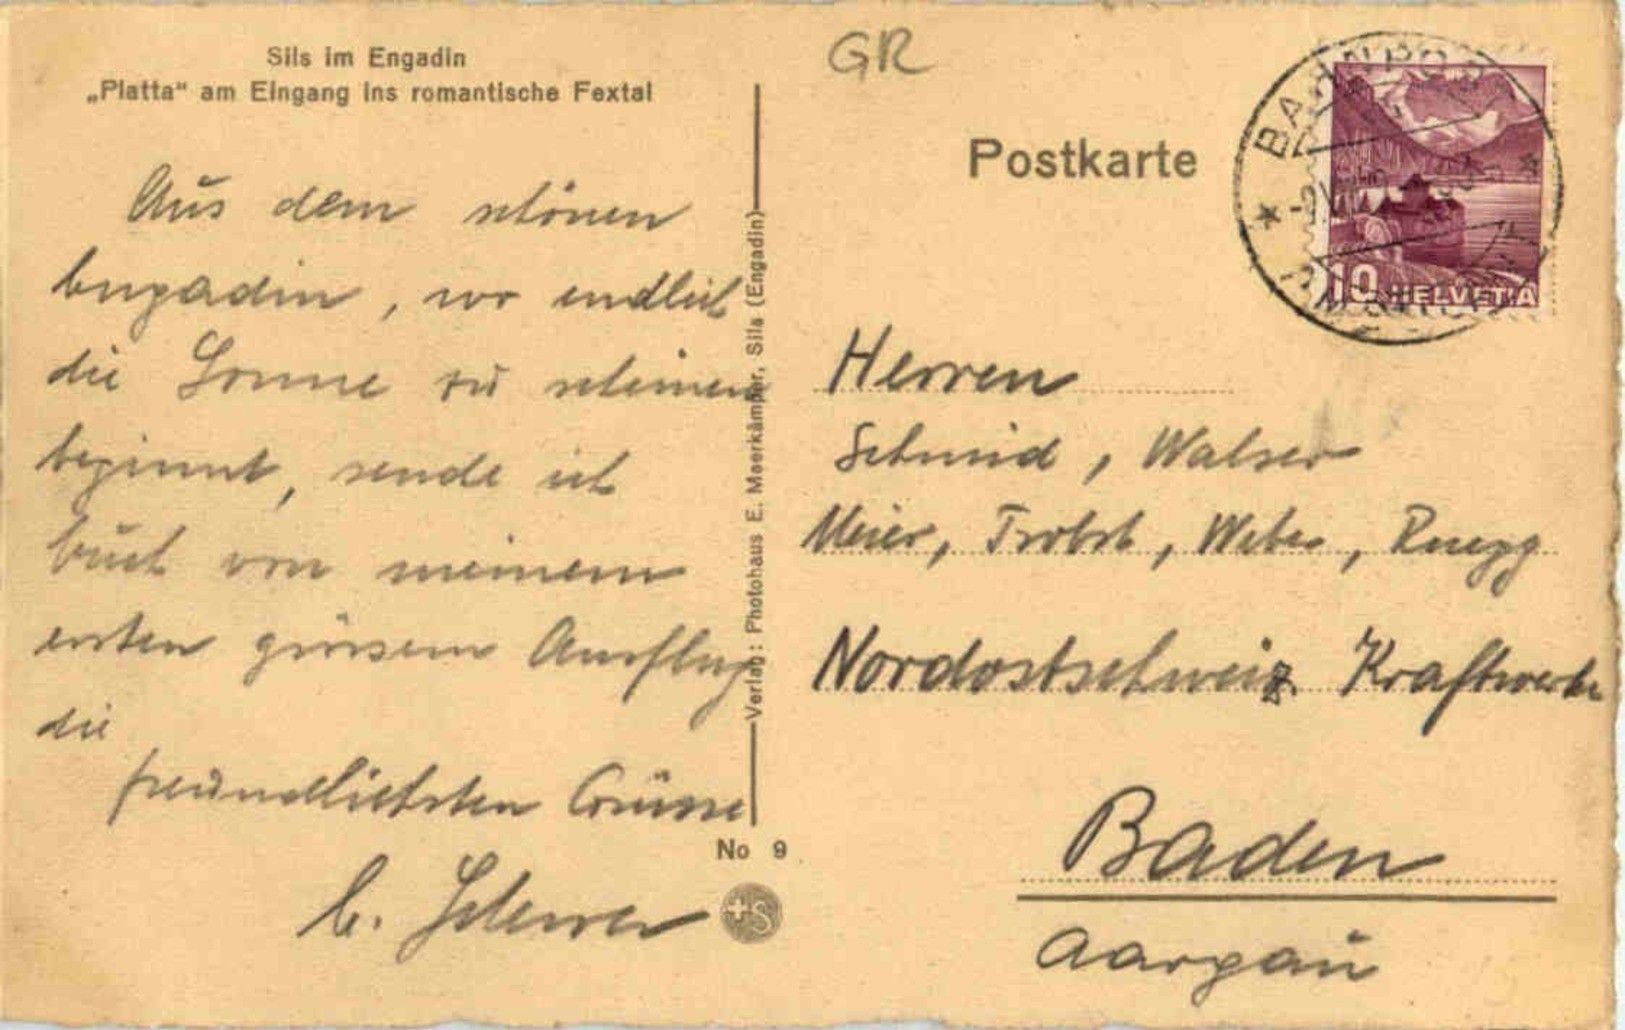 Sils im Engadin
„Platta“ am Eingang ins romantische Fextal
Aus dem schönen
Engadin, wo endlich
die Sonne zu scheinen
beginnt, sende ich
Euch von meinem
ersten grössern Ausflug
die
freundlichsten Grüsse
E.
Verlag: Photohaus E. Maerkämper, Sils (Engadin)
No 9
+S
GR
Postkarte
BAHNPO
10 HELVETIA
Herren
Schmid, Walser
Meier, Probst, Weber, Ruegg
Nordostschweiz. Kraftwerke
Baden
Aargau